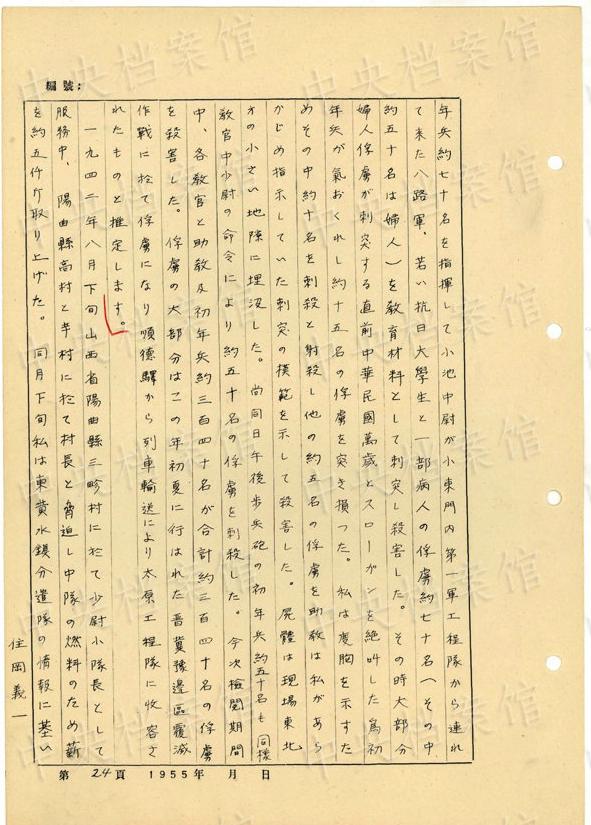 編號:
年兵約七十名を指揮して小池中尉が小東門内第一軍工程隊から連れ
て来た八路軍、若い抗日大学生と一部病人の俘虜約七十名(その中
約五十名は婦人)を教育材料として刺突し殺害した。その時大部分
婦人俘虜が刺突する直前中華民國萬歳とスローガンを絶叫した為初
年兵が氣おくれし約十五名の俘虜を突き損つた。私は度胸を示すた
めその中約十名を刺殺と射殺し他の約五名の俘虜を助教は私があら
かじめ指示していた刺突の模範を示して殺害した。屍體は現場東北
方の小さい地隙に埋没した。尚同日午後歩兵砲の初年兵約五十名も同様
教官中少尉の命令により約五十名の俘虜を刺殺した。今次檢閲期間
中、各教官と助教及初年兵約三百四十名が合計約三百四十名の俘虜
を殺害した。俘虜の大部分はこの年初夏に行はれた晋冀豫邊區覆滅
作戰に於て俘虜になり順德驛から列車輸送により太原工程隊に收容さ
れたものと推定します。
一九四二年八月下旬山西省陽曲縣三畛村に於て少尉小隊長として
服務中、陽曲縣高村と辛村に於て村長と脅迫し中隊の燃料のため薪
を約五千斤取り上げた。同月下旬私は東黄水鎮分遣隊の情報に基い
住岡義一
第 24 頁 1955年 月 日
中央档案馆